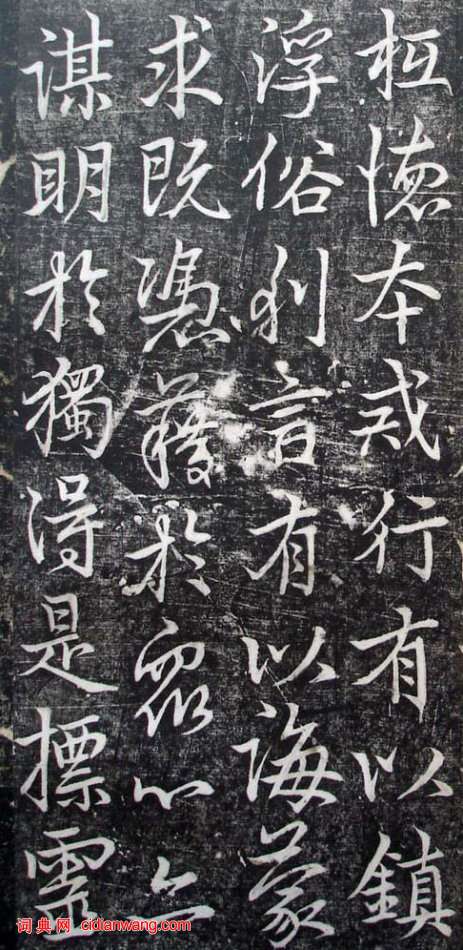 德本戒行有以鎮
浮俗利言有以誨蒙
求既憑藉於眾心亦
謀明於獨得是標靈
词典网 cidianwang.com